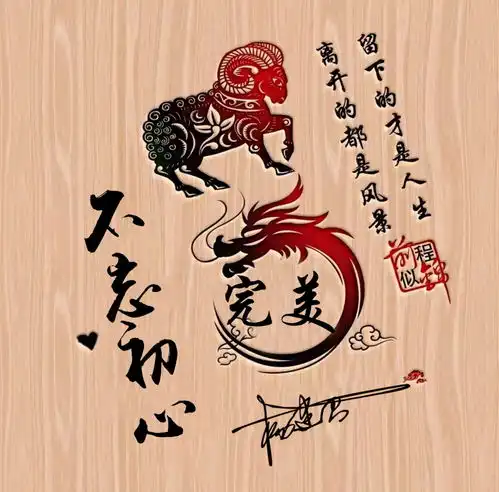 留下的才是人生
离开的都是风景
前程似锦
完美
不忘初心